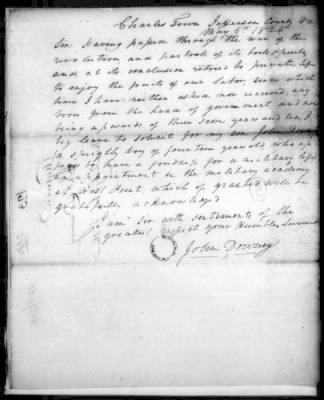 Charles Town Jefferson County Va
May 6th 1824
Sir Having passed through the war of the
revolution and partook of its toils & perils
and at its conclusion retired to private life
to enjoy the fruits of our labor, since which
time I have neither asked nor received any
from the hand of government, and now
being upwards of three score years and ten, I
beg leave to solicit for my son John Downey
(a sprightly boy of fourteen years old, who ap
pears to have a fondness for a military life)
an appointment in the military academy
at West Point, which if granted will be
gratefully acknowledged
I am Sir with sentiments of the
greatest respect your Humble Servant
John Downey